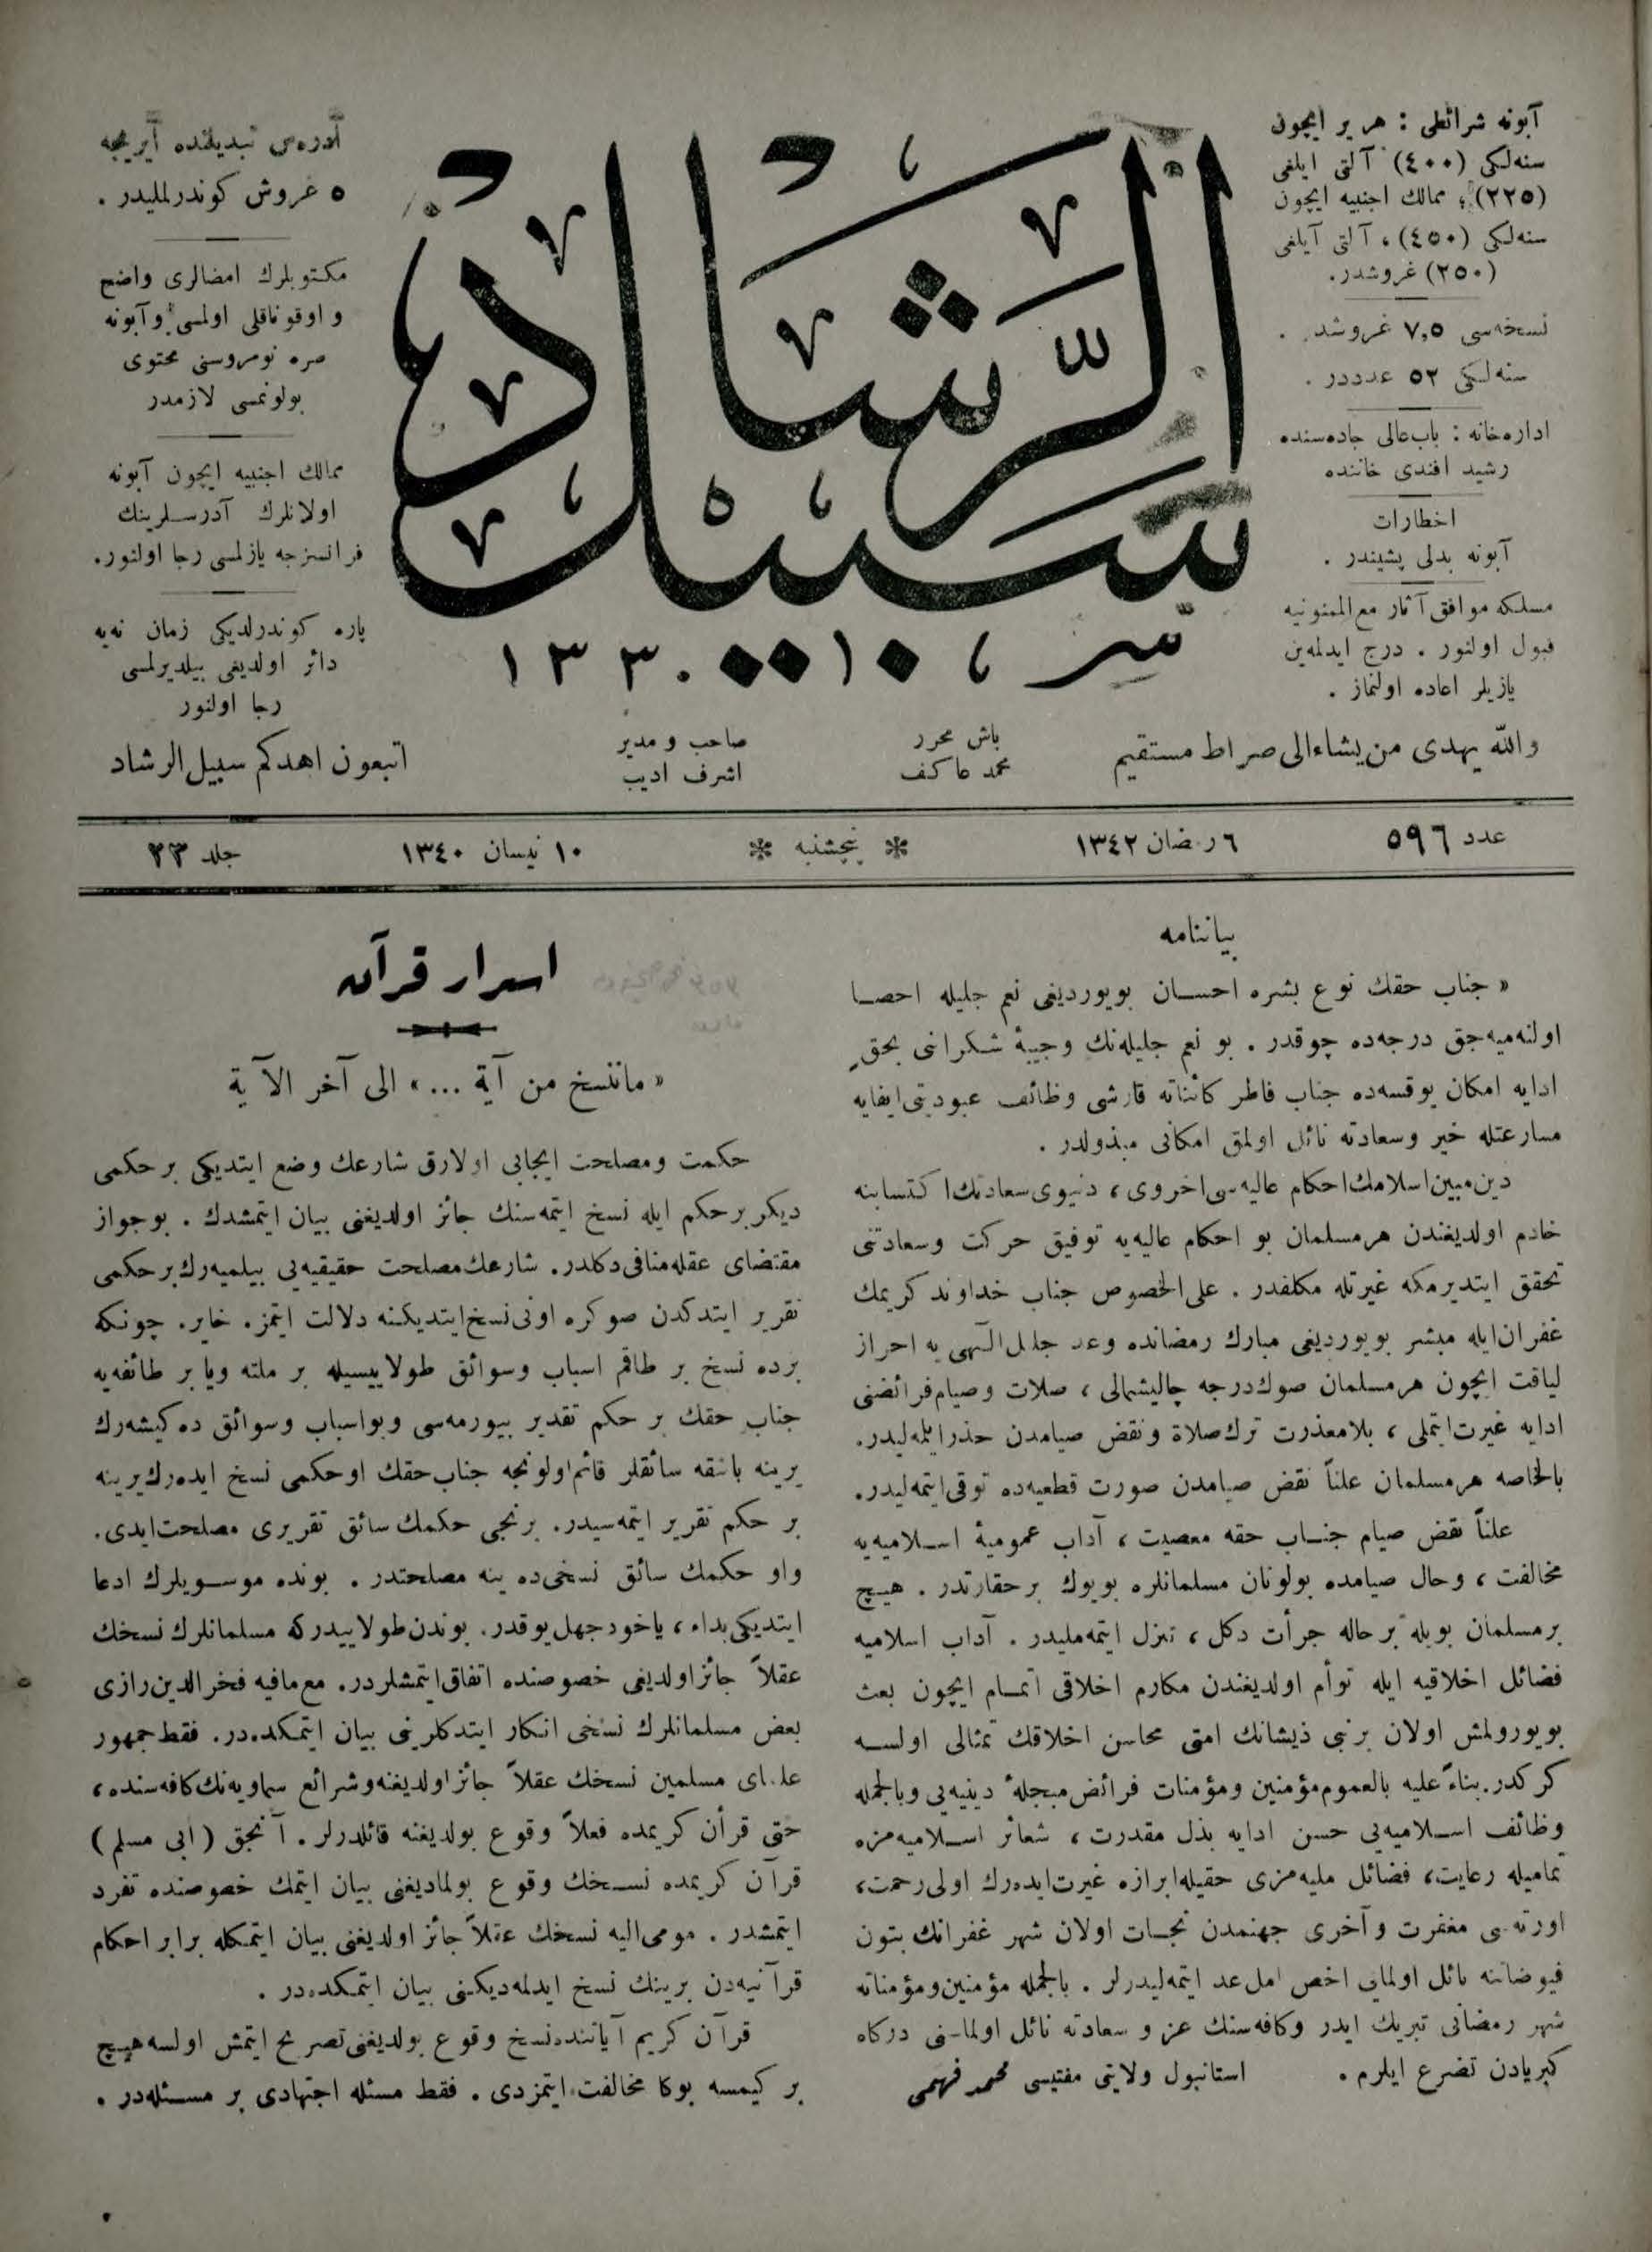 آبونه شرائطی : هر یر ایچون
سنه‌لکی (٤٠٠) آلتی ایلغی
(٢٢٥)؛ ممالك اجنبیه ایچون
سنه‌لکی (٤٥٠)، آلتی آیلغی
(٢٥٠) غروشدر.
نسخه‌سی ٧,٥ غروشدر .
سنه‌لکی ٥٢ عدددر .
اداره‌خانه : باب‌عالی جاده‌سنده
رشید افندی خاننده
اخطارات
آبونه بدلی پشیندر .
مسلکه موافق آثار مع‌الممنونیه
قبول اولنور . درج ایدلمه‌ین
یازیلر اعاده اولنماز .
سبیل الرشاد
١٣٣٠
آدرس تبدیلنده آیریجه
٥ غروش کوندرلملیدر .
مکتوبلرك امضالری واضح
و اوقوناقلی اولمسی و آبونه
صره نومروسنی محتوی
بولونمسی لازمدر
ممالك اجنبیه ایچون آبونه
اولانلرك آدرسلرینك
فرانسزجه یازلمسی رجا اولنور.
پاره کوندرلدیکی زمان نه‌یه
دائر اولدیغی بیلدیرلمسی
رجا اولنور
والله یهدی من یشاء الی صراط مستقیم
باش محرر
محمد عاکف
صاحب و مدیر
اشرف ادیب
اتبعون اهدکم سبیل الرشاد
عدد ٥٩٦
٦ رمضان ١٣٤٢
* پنجشنبه *
١٠ نیسان ١٣٤٠
جلد ٢٣
بیاننامه
« جناب حقك نوع بشره احسان بویوردیغی نعم جلیله احصا
اولنه‌میه‌جق درجه‌ده چوقدر . بو نعم جلیله‌نك وجیبۀ شکرانی بحق
ادایه امکان یوقسه‌ده جناب فاطر کائناته قارشی وظائف عبودیتی ایفایه
مسارعتله خیر وسعادته نائل اولمق امکانی مبذولدر .
دین مبین اسلامك احکام عالیه‌سی اخروی ، دنیوی سعادتك اکتسابنه
خادم اولدیغندن هر مسلمان بو احکام عالیه‌یه توفیق حرکت وسعادتنی
تحقق ایتدیرمکه غیرتله مکلفدر . علی الخصوص جناب خداوند کریمك
غفران ایله مبشر بویوردیغی مبارك رمضانده وعد جلیل الهی یه احراز
لیاقت ایچون هر مسلمان صوك درجه چالیشمالی ، صلات وصیام فرائضنی
ادایه غیرت ایتملی ، بلامعذرت ترك صلاة و نقض صیامدن حذر ایلمه‌لیدر.
بالخاصه هر مسلمان علناً نقض صیامدن صورت قطعیه‌ده توقی ایتمه‌لیدر.
علناً نقض صیام جناب حقه معصیت ، آداب عمومیۀ اسلامیه‌یه
مخالفت ، وحال صیامده بولونان مسلمانلره بویوك بر حقارتدر . هیچ
بر مسلمان بویله بر حاله جرأت دکل ، تنزل ایتمه‌ملیدر . آداب اسلامیه
فضائل اخلاقیه ایله توأم اولدیغندن مکارم اخلاقی اتمام ایچون بعث
بویورولمش اولان بر نبی ذیشانك امتی محاسن اخلاقك تمثالی اولسه
کرکدر. بناءً علیه بالعموم مؤمنین ومؤمنات فرائض مبجلۀ دینیه‌یی وبالجمله
وظائف اسلامیه‌یی حسن ادایه بذل مقدرت ، شعائر اسلامیه‌مزه
تمامیله رعایت، فضائل ملیه‌مزی حقیله ابرازه غیرت ایده‌رك اولی رحمت،
اورته‌سی مغفرت و آخری جهنمدن نجات اولان شهر غفرانك بتون
فیوضاتنه نائل اولمایی اخص امل عد ایتمه‌لیدرلر . بالجمله مؤمنین ومؤمناته
شهر رمضانی تبریك ایدر وکافه‌سنك عز و سعادته نائل اولماسنی درکاه
کبریادن تضرع ایلرم . استانبول ولایتی مفتیسی محمد فهمی
اسرار قرآن
« ماننسخ من آیة ... » الی آخر الآیة
حکمت ومصلحت ایجابی اولارق شارعك وضع ایتدیکی بر حکمی
دیکر بر حکم ایله نسخ ایتمه‌سنك جائز اولدیغنی بیان ایتمشدك . بو جواز
مقتضای عقله منافی دکلدر. شارعك مصلحت حقیقیه‌یی بیلمیه‌رك بر حکمی
تقریر ایتدکدن صوکره اونی نسخ ایتدیکنه دلالت ایتمز. خایر. چونکه
برده نسخ بر طاقم اسباب وسوائق طولاییسیله بر ملته ویا بر طائفه‌یه
جناب حقك بر حکم تقدیر بیورمه‌سی وبو اسباب وسوائق ده‌کیشه‌رك
یرینه باشقه سائقلر قائم اولونجه جناب حقك او حکمی نسخ ایده‌رك یرینه
بر حکم تقریر ایتمه‌سیدر. برنجی حکمك سائق تقریری مصلحت ایدی.
واو حکمك سائق نسخی‌ده ینه مصلحتدر . بونده موسویلرك ادعا
ایتدیکی بداء ، یاخود جهل یوقدر. بوندن طولاییدرکه مسلمانلرك نسخك
عقلاً جائز اولدیغی خصوصنده اتفاق ایتمشلردر. مع‌مافیه فخرالدین رازی
بعض مسلمانلرك نسخی انکار ایتدکلرینی بیان ایتمکده‌در. فقط جمهور
علمای مسلمین نسخك عقلاً جائز اولدیغنه وشرائع سماویه‌نك کافه‌سنده ،
حتی قرآن کریمده فعلاً وقوع بولدیغنه قائلدرلر . آنجق ( ابی مسلم )
قرآن کریمده نسخك وقوع بولمادیغنی بیان ایتمك خصوصنده تفرد
ایتمشدر . مومی‌الیه نسخك عقلاً جائز اولدیغنی بیان ایتمکله برابر احکام
قرآنیه‌دن برینك نسخ ایدلمه‌دیکنی بیان ایتمکده‌در .
قرآن کریم آیاتنده نسخ وقوع بولدیغنی تصریح ایتمش اولسه هیچ
بر کیمسه بوکا مخالفت ایتمزدی . فقط مسئله اجتهادی بر مسئله‌در .